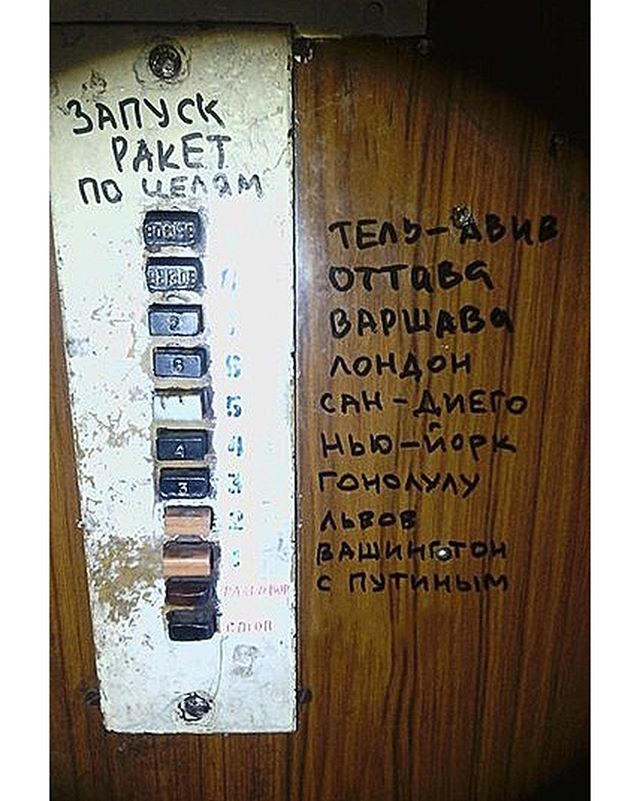 ЗАПУСК
РАКЕТ
ПО ЦЕЛЯМ
ТЕЛЬ-АВИВ
ОТТАВА
ВАРШАВА
6 6 ЛОНДОН
5 САН-ДИЕГО
4 4 НЬЮ-ЙОРК
3 3 ГОНОЛУЛУ
2 ЛЬВОВ
1 ВАШИНГТОН
РАЗГОВОР С ПУТИНЫМ
СТОП